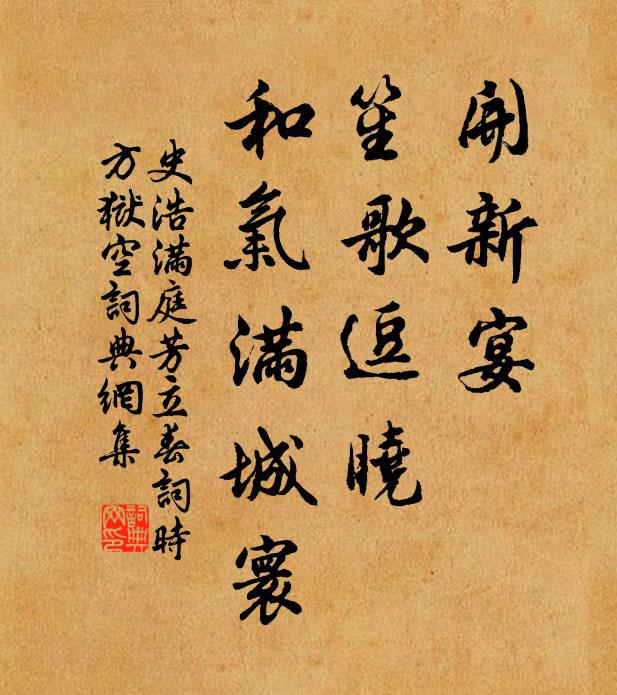 開新宴
笙歌逗曉
和氣滿城寰
史浩滿庭芳立春詞時
方獄空詞典網集
詞典
网印